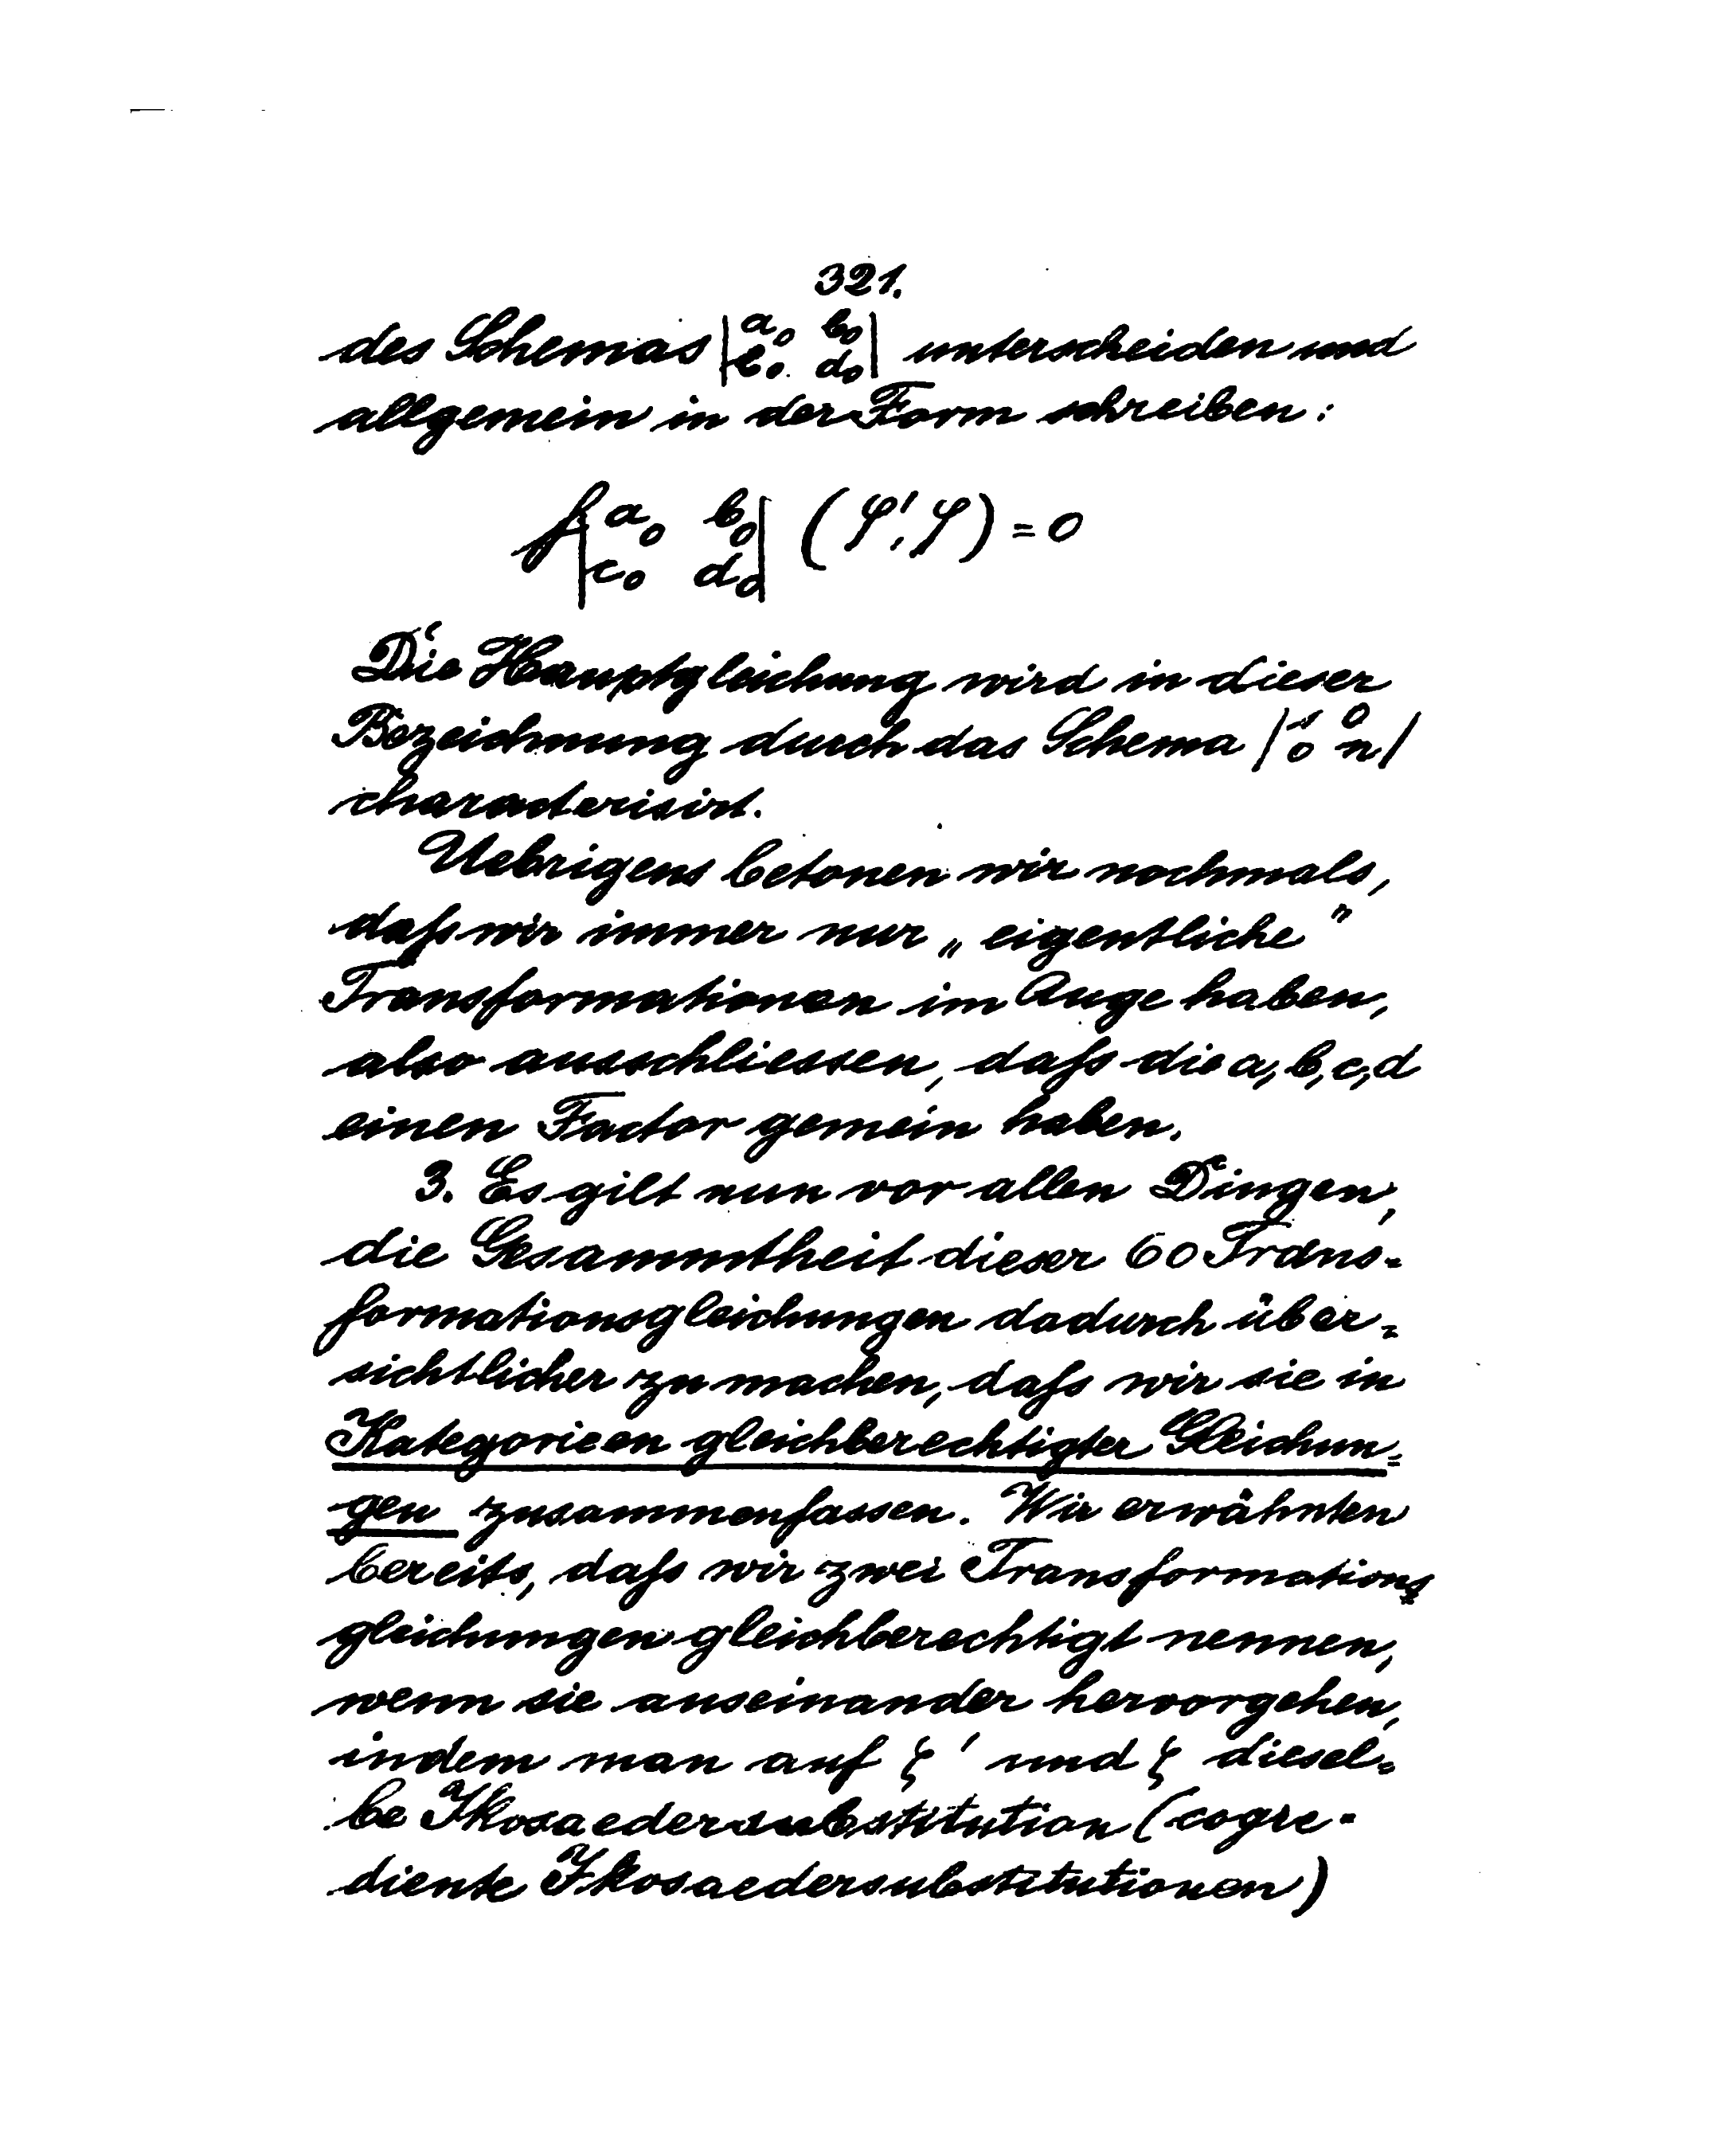 321.
des Schemas |a₀ b₀ / c₀ d₀| unterscheiden und
allgemein in der Form schreiben:
f|a₀ b₀ / c₀ d₀| (ζ', ζ) = 0
Die Hauptgleichung wird in dieser
Bezeichnung durch das Schema |1 0 / 0 n|
characterisirt.
Uebrigens betonen wir nochmals,
daſs wir immer nur „eigentliche"
Transformationen im Auge haben,
also ausschliessen, daſs die a, b, c, d
einen Factor gemein haben.
3. Es gilt nun vor allen Dingen,
die Gesammtheit dieser 60 Trans-
formationsgleichungen dadurch über-
sichtlicher zu machen, daſs wir sie in
Kategorieen gleichberechtigter Gleichun-
gen zusammenfassen. Wir erwähnten
bereits, daſs wir zwei Transformations-
gleichungen gleichberechtigt nennen,
wenn sie auseinander hervorgehen,
indem man auf ζ' und ζ diesel-
be Ikosaedersubstitution (cogre-
diente Ikosaedersubstitutionen)